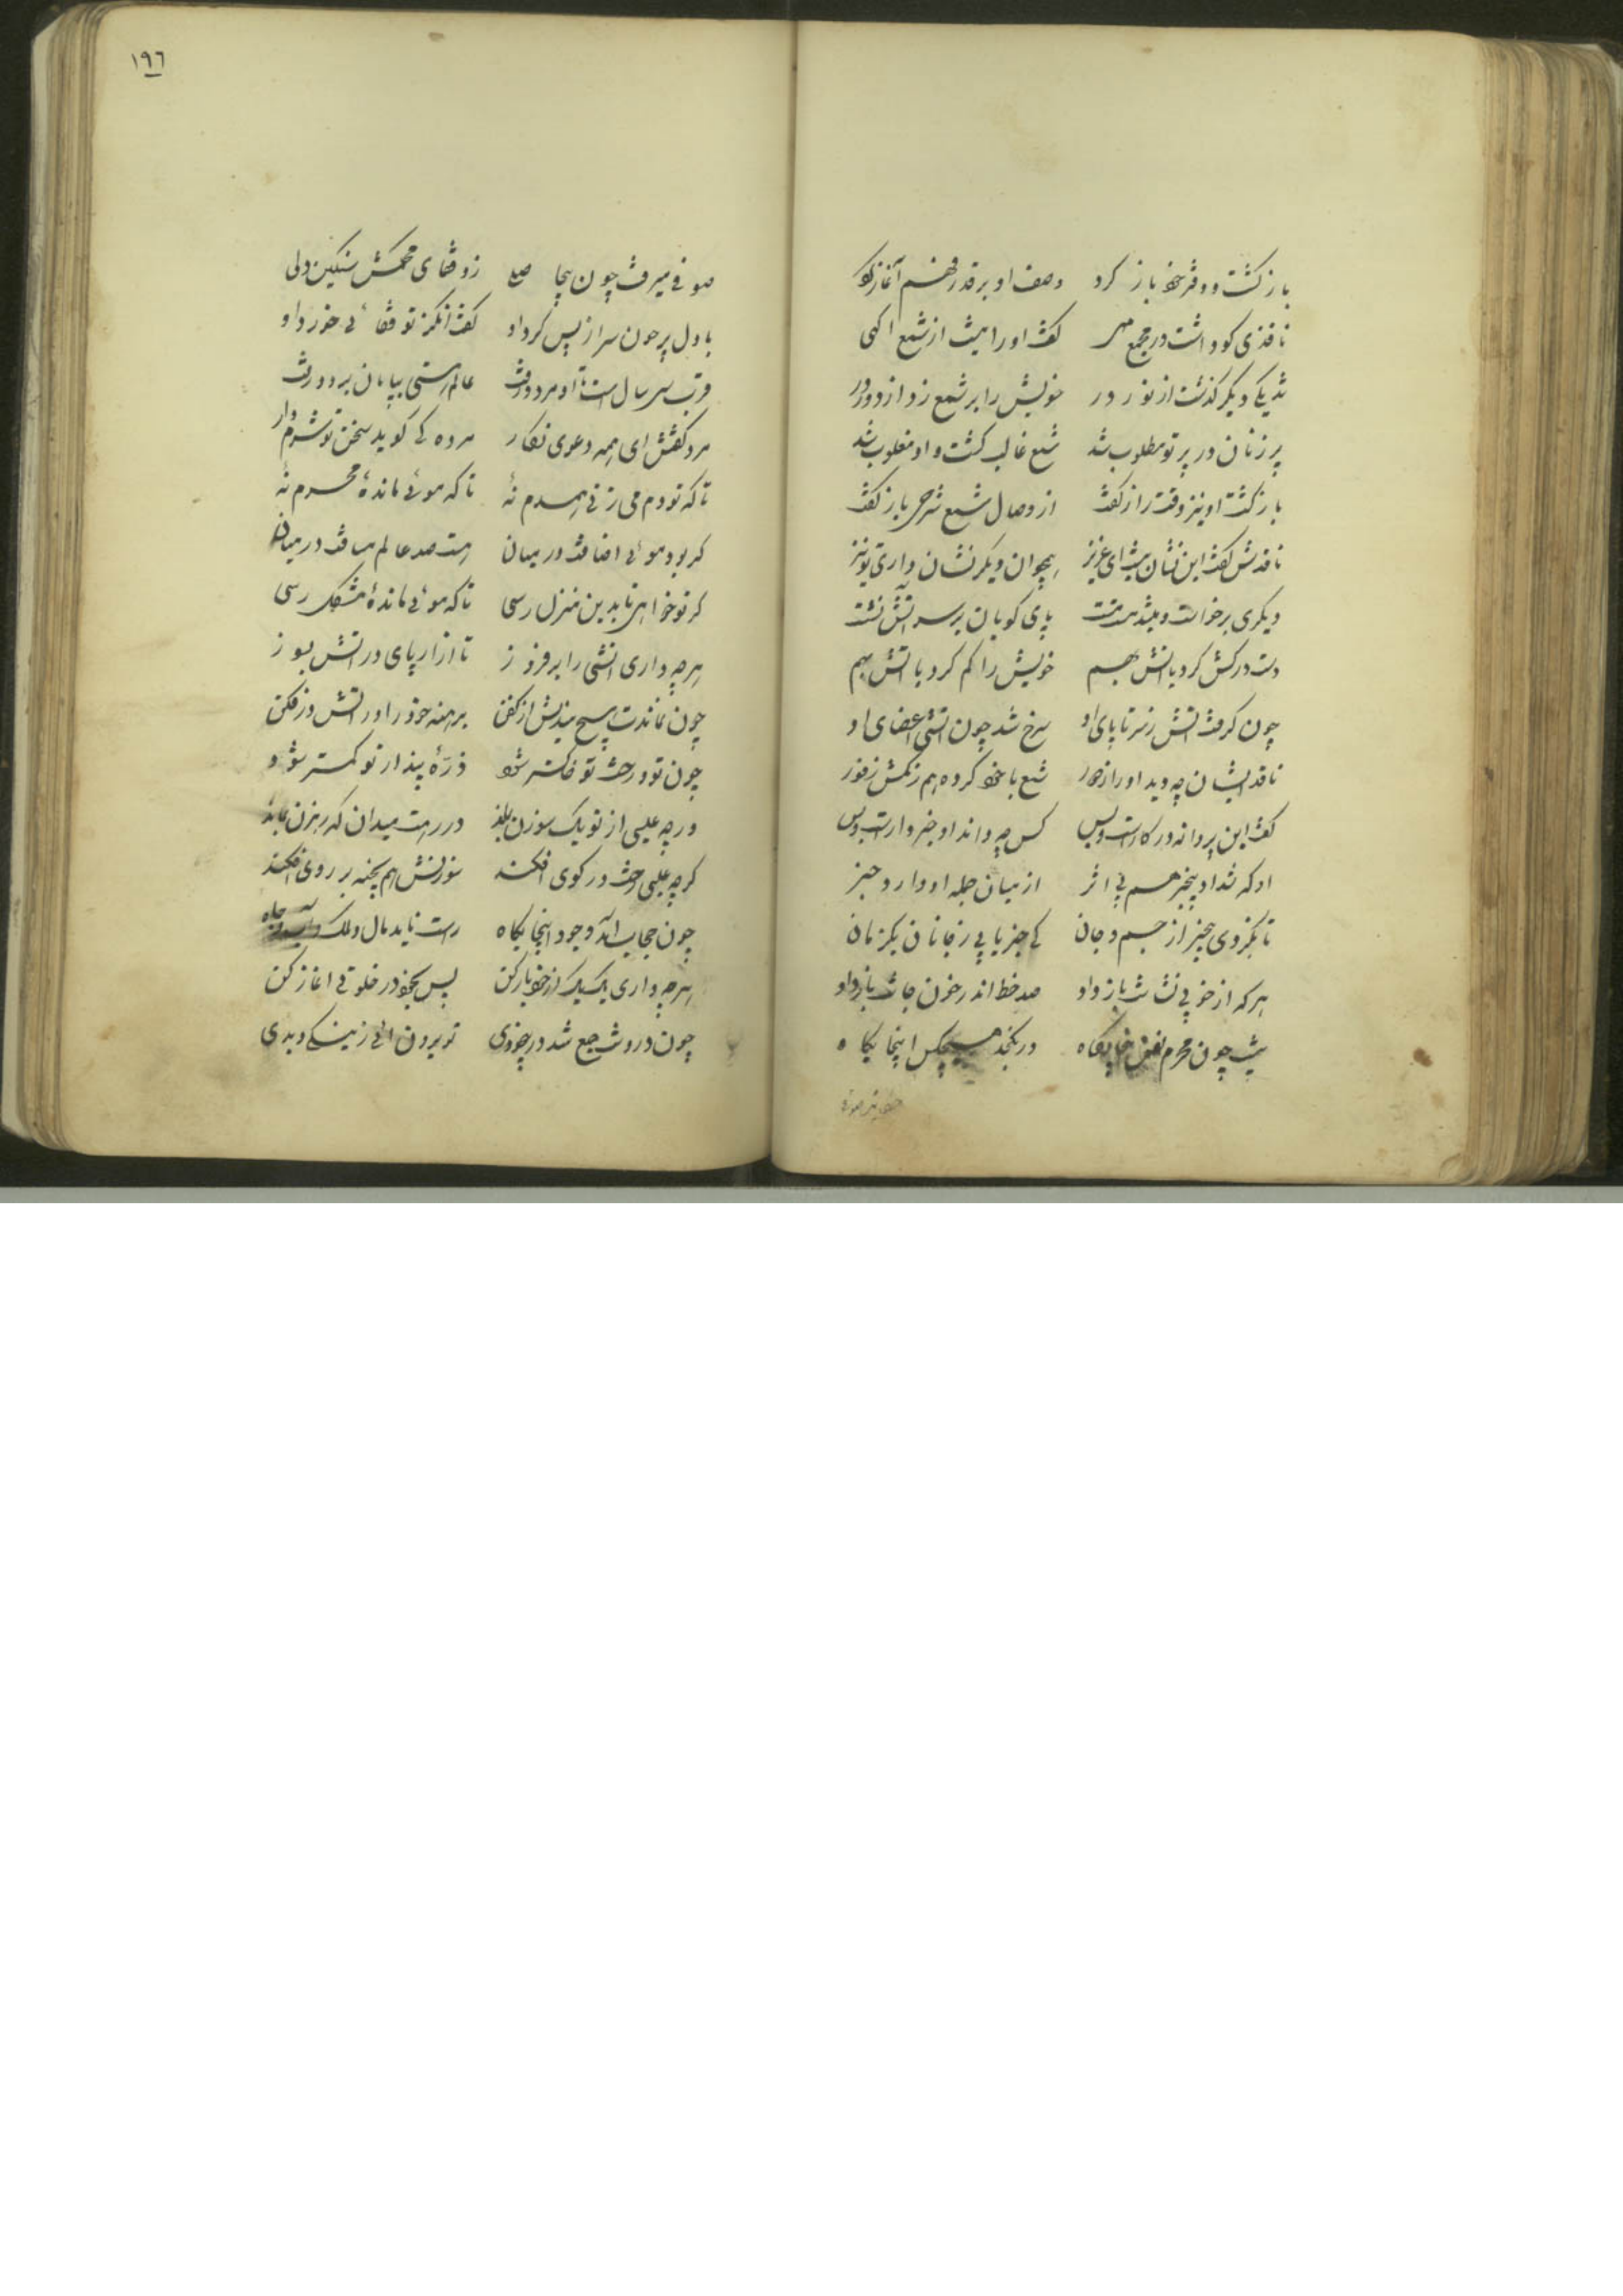 باز گشت و دفتر خود باز کرد وصف او بر قدر فهم آغاز کرد
ناقدی کو داشت در مجمع مهی گفت او را نیست از شمع آگهی
شد یکی دیگر گذشت از نور در خویش را بر شمع زد از دور در
پر زنان در پرتو مطلوب شد شمع غالب گشت و او مغلوب شد
بازگشت او نیز و مشتی راز گفت از وصال شمع شرحی باز گفت
ناقدش گفت این نشان نیست ای عزیز همچو آن دیگر نشان داری تو نیز
دیگری برخاست و میشد مست مست پای کوبان بر سر آتش نشست
دست درکش کرد با آتش بهم خویش را گم کرد با آتش بهم
چون گرفت آتش ز سر تا پای او سرخ شد چون آتشی اعضای او
ناقد ایشان چو دید او را ز دور شمع با خود کرده هم رنگش ز نور
گفت این پروانه در کارست و بس کس چه داند او خبر دارست و بس
او که شد او بیخبر هم بی اثر از میان جمله او دارد خبر
تا نگردی بیخبر از جسم و جان کی خبر یابی ز جانان یکزمان
هرکه از خود بی نشانت باز داد صد خط اندر خون جانت باز داد
نیست چون محرم نفس اینجایگاه در نگنجد هیچکس اینجایگاه
صوفی میرفت
۱۹٦
صوفی میرفت چون بیحاصلی زد قفای محکمش سنگین دلی
با دل پرخون سر از پس کرد او گفت آنکز تو قفائی خورد او
قرب سی سال است تا او مرد و رفت عالم هستی بپایان برد و رفت
مرد گفتش ای همه دعوی نه کار مرده کی گوید سخن تو شرم دار
تا که تو دم می زنی همدم نهٔ تا که موئی ماندهٔ محرم نهٔ
گر بود موئی اضافت در میان هست صد عالم مسافت در میان
گر تو خواهی تا بدین منزل رسی تا که موئی ماندهٔ مشکل رسی
هرچه داری آتشی را برفروز تا ازار پای در آتش بسوز
چون نماندت هیچ مندیش از کفن برهنه خود را در آتش درفکن
چون تو و رخت تو خاکستر شود ذرّهٔ پندار تو کمتر شود
ور چو عیسی از تو یک سوزن بماند در رهت میدان که رهزن بماند
گرچه عیسی رخت در کوی افکند سوزنش هم بخیه بر روی افکند
چون حجاب آمد وجود اینجایگاه راست ناید مال و ملک و آب و جاه
هرچه داری یک بیک از خود بازکن پس بخود در خلوتی آغاز کن
چون درونت جمع شد در بیخودی تو برون آئی ز نیکی و بدی